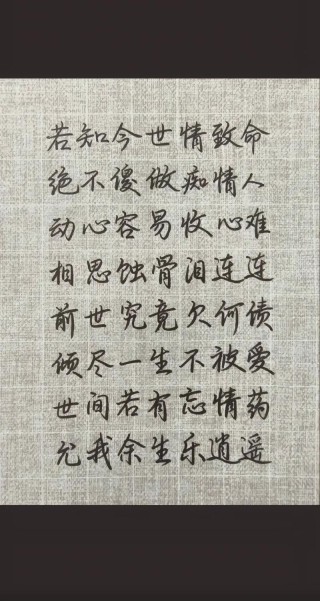 若知今世情致命
绝不傻做痴情人
动心容易收心难
相思蚀骨泪连连
前世究竟欠何债
倾尽一生不被爱
世间若有忘情药
允我余生乐逍遥